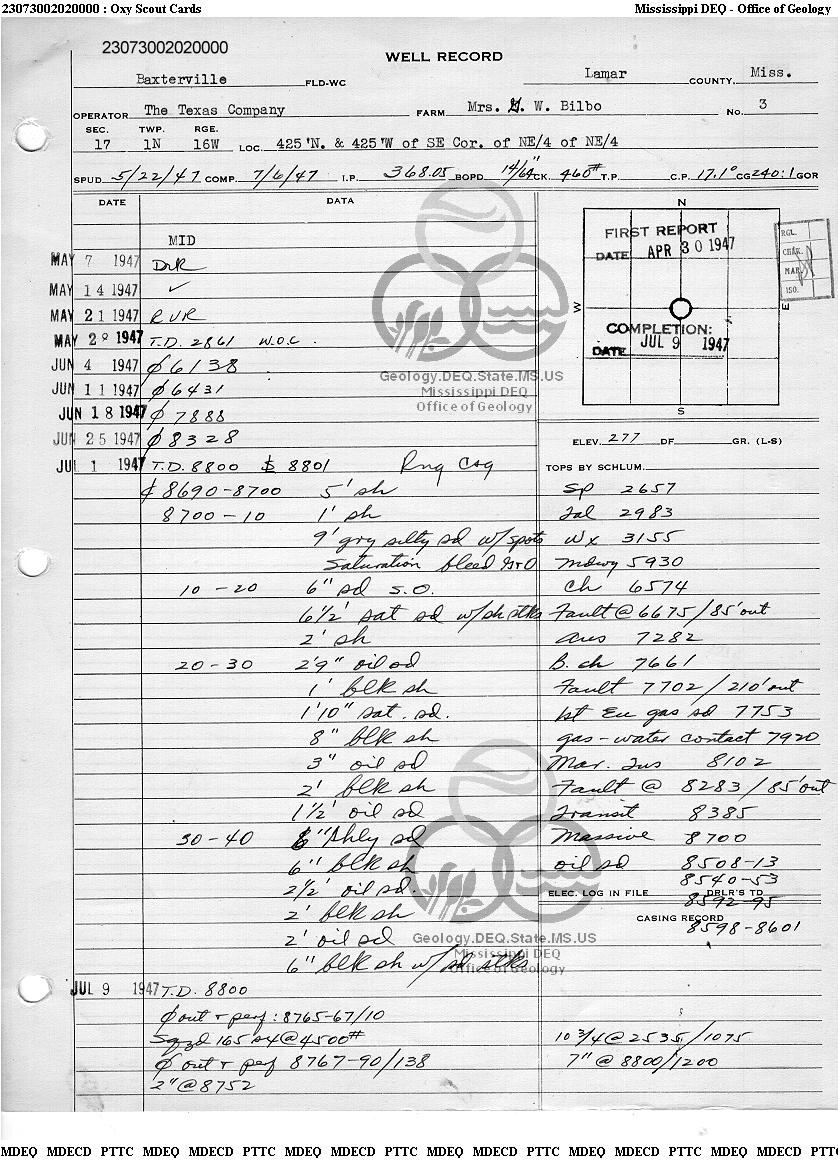 23073002020000 : Oxy Scout Cards
Mississippi DEQ - Office of Geology
23073002020000
WELL RECORD
Baxterville FLD-WC Lamar COUNTY, Miss.
OPERATOR The Texas Company FARM Mrs. G. W. Bilbo No. 3
SEC. TWP. RGE.
17 1N 16W LOC. 425'N. & 425'W of SE Cor. of NE/4 of NE/4
SPUD 5/22/47 COMP. 7/6/47 I.P. 368.05 BOPD 14/64" CK. 460# T.P. C.P. 17.1° CG 240:1 GOR
DATE DATA
MID
MAY 7 1947 DrR
MAY 14 1947 ✓
MAY 21 1947 RUR
MAY 28 1947 T.D. 2861 W.O.C.
JUN 4 1947 ϕ 6138
JUN 11 1947 ϕ 6431
JUN 18 1947 ϕ 7888
JUN 25 1947 ϕ 8328
JUL 1 1947 T.D. 8800 $ 8801 Rng Csg
₵ 8690-8700 5' sh
8700-10 1' sh
9' gry silty sd w/ spots
Saturation bleed G+O
10-20 6" sd s.o.
6 1/2' sat sd w/sh stks
2' sh
20-30 2'9" oil sd
1' blk sh
1'10" sat. sd.
8" blk sh
3" oil sd
2' blk sh
1 1/2' oil sd
30-40 6" shly sd
6" blk sh
2 1/2' oil sd.
2' blk sh
2' oil sd
6" blk sh w/ sd stks
JUL 9 1947 T.D. 8800
ϕ out + perf: 8765-67/10
Sqzd 165 sx @ 4500#
ϕ out + perf 8767-90/138
2" @ 8752
N
FIRST REPORT
DATE APR 30 1947
W
E
COMPLETION:
DATE JUL 9 1947
S
RGL.
CHK.
MAP
ISO.
ELEV. 277 DF GR. (L-S)
TOPS BY SCHLUM.
Sp 2657
Jal 2983
Wx 3155
Mdwy 5930
Ch 6574
Fault @ 6675/85' out
Aus 7282
B. ch 7661
Fault 7702/210' out
1st Eu gas sd 7753
gas-water contact 7920
Mar. Tus 8102
Fault @ 8283/85' out
Transit 8385
Massive 8700
oil sd 8508-13
8540-53
ELEC. LOG IN FILE DRLR'S TD
8592-95
CASING RECORD
8598-8601
10 3/4 @ 2535/1075
7" @ 8800/1200
Geology.DEQ.State.MS.US
Mississippi DEQ
Office of Geology
Geology.DEQ.State.MS.US
Mississippi DEQ
Office of Geology
MDEQ MDECD PTTC MDEQ MDECD PTTC MDEQ MDECD PTTC MDEQ MDECD PTTC MDEQ MDECD PTTC MDEQ MDECD PTT